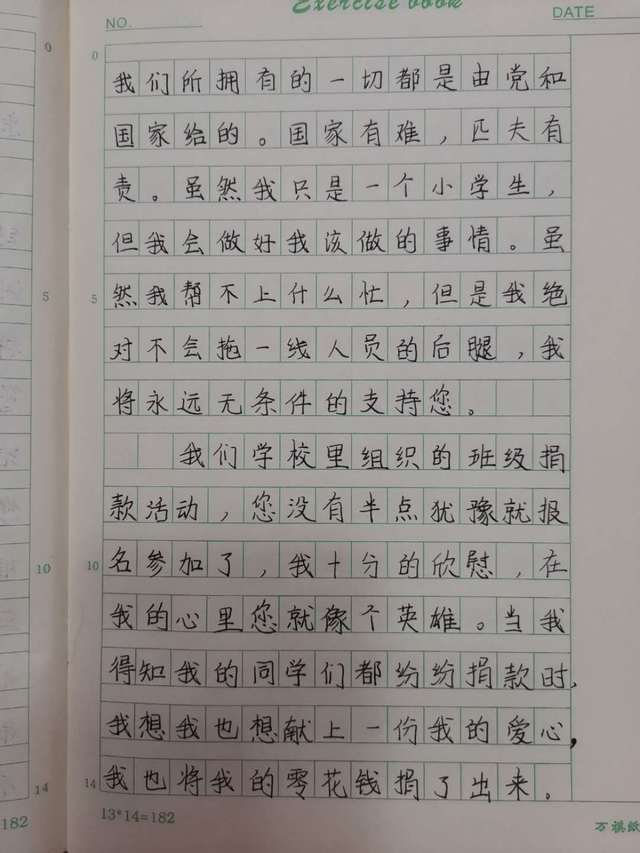 Exercise book
NO.
DATE
0
0
我们所拥有的一切都是由党和
国家给的。国家有难，匹夫有
责。虽然我只是一个小学生，
但我会做好我该做的事情。虽
5
5
然我帮不上什么忙，但是我绝
对不会拖一线人员的后腿，我
将永远无条件的支持您。
我们学校里组织的班级捐
款活动，您没有半点犹豫就报
10
10
名参加了，我十分的欣慰，在
我的心里您就像个英雄。当我
得知我的同学们都纷纷捐款时，
我想我也想献上一份我的爱心，
14
14
我也将我的零花钱捐了出来。
182
13*14=182